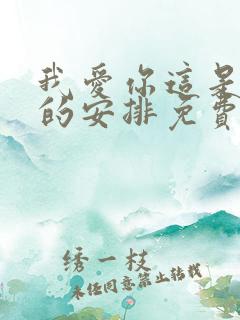 我愛你這是
的安排免費
绣一枝
未经同意禁止转载